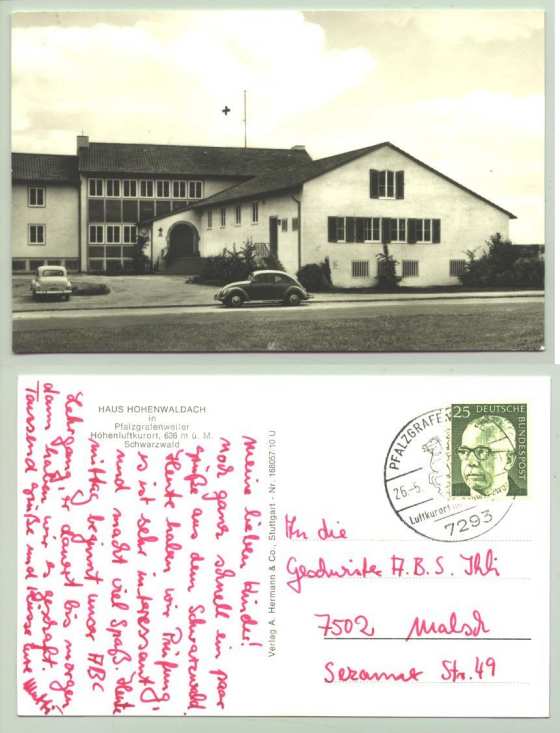 HAUS HOHENWALDACH
in
Pfalzgrafenweiler
Höhenluftkurort, 636 m ü. M.
Schwarzwald
Meine lieben Kinder!
noch ganz schnell ein paar
Grüße aus dem Schwarzwald.
Heute haben wir Prüfung,
es ist sehr interessant
und macht viel Spaß. Heute
mittag beginnt unser ABC
Lehrgang, er dauert bis morgen
dann haben wir es geschafft.
Tausend Grüße und Küsse Eure Mutti
Verlag A. Hermann & Co., Stuttgart - Nr. 168057/10 U
PFALZGRAFEN
26.-5.
Luftkurort
7293
25 DEUTSCHE
BUNDESPOST
An die
Geschwister A.B.S. Ihli
7502 Malsch
Sezanner Str. 49